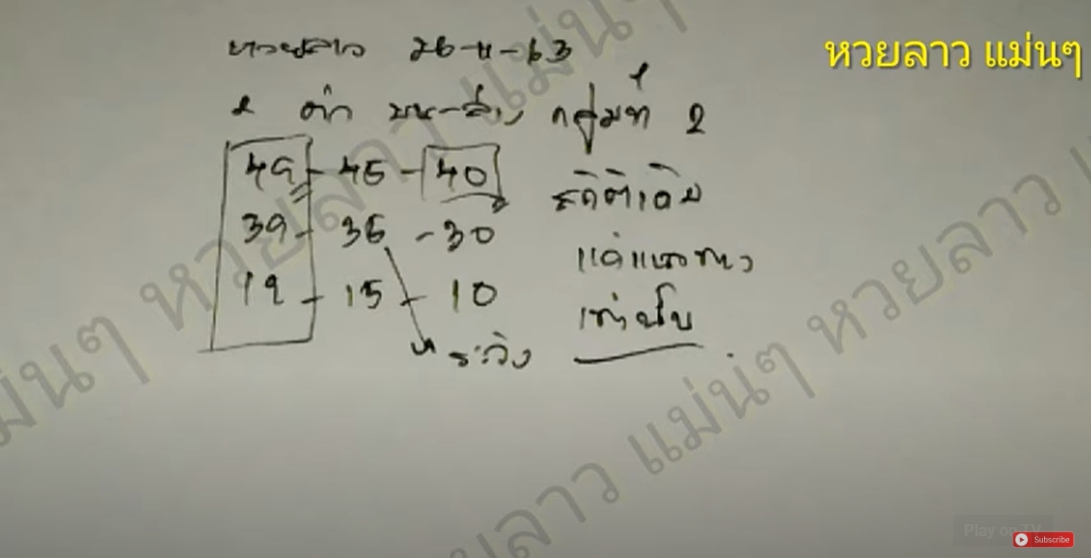 หวยลาว แม่นๆ
หวยลาว 26-11-63
2 ตัว บน-ล่าง กลุ่มที่ 2
49 - 45 - 40
39 - 35 - 30 สถิติเดิม
19 - 15 - 10 แค่แนวทาง
ระวัง เท่านั้น
หวยลาว แม่นๆ หวยลาว แม่นๆ
Play on TV
Subscribe